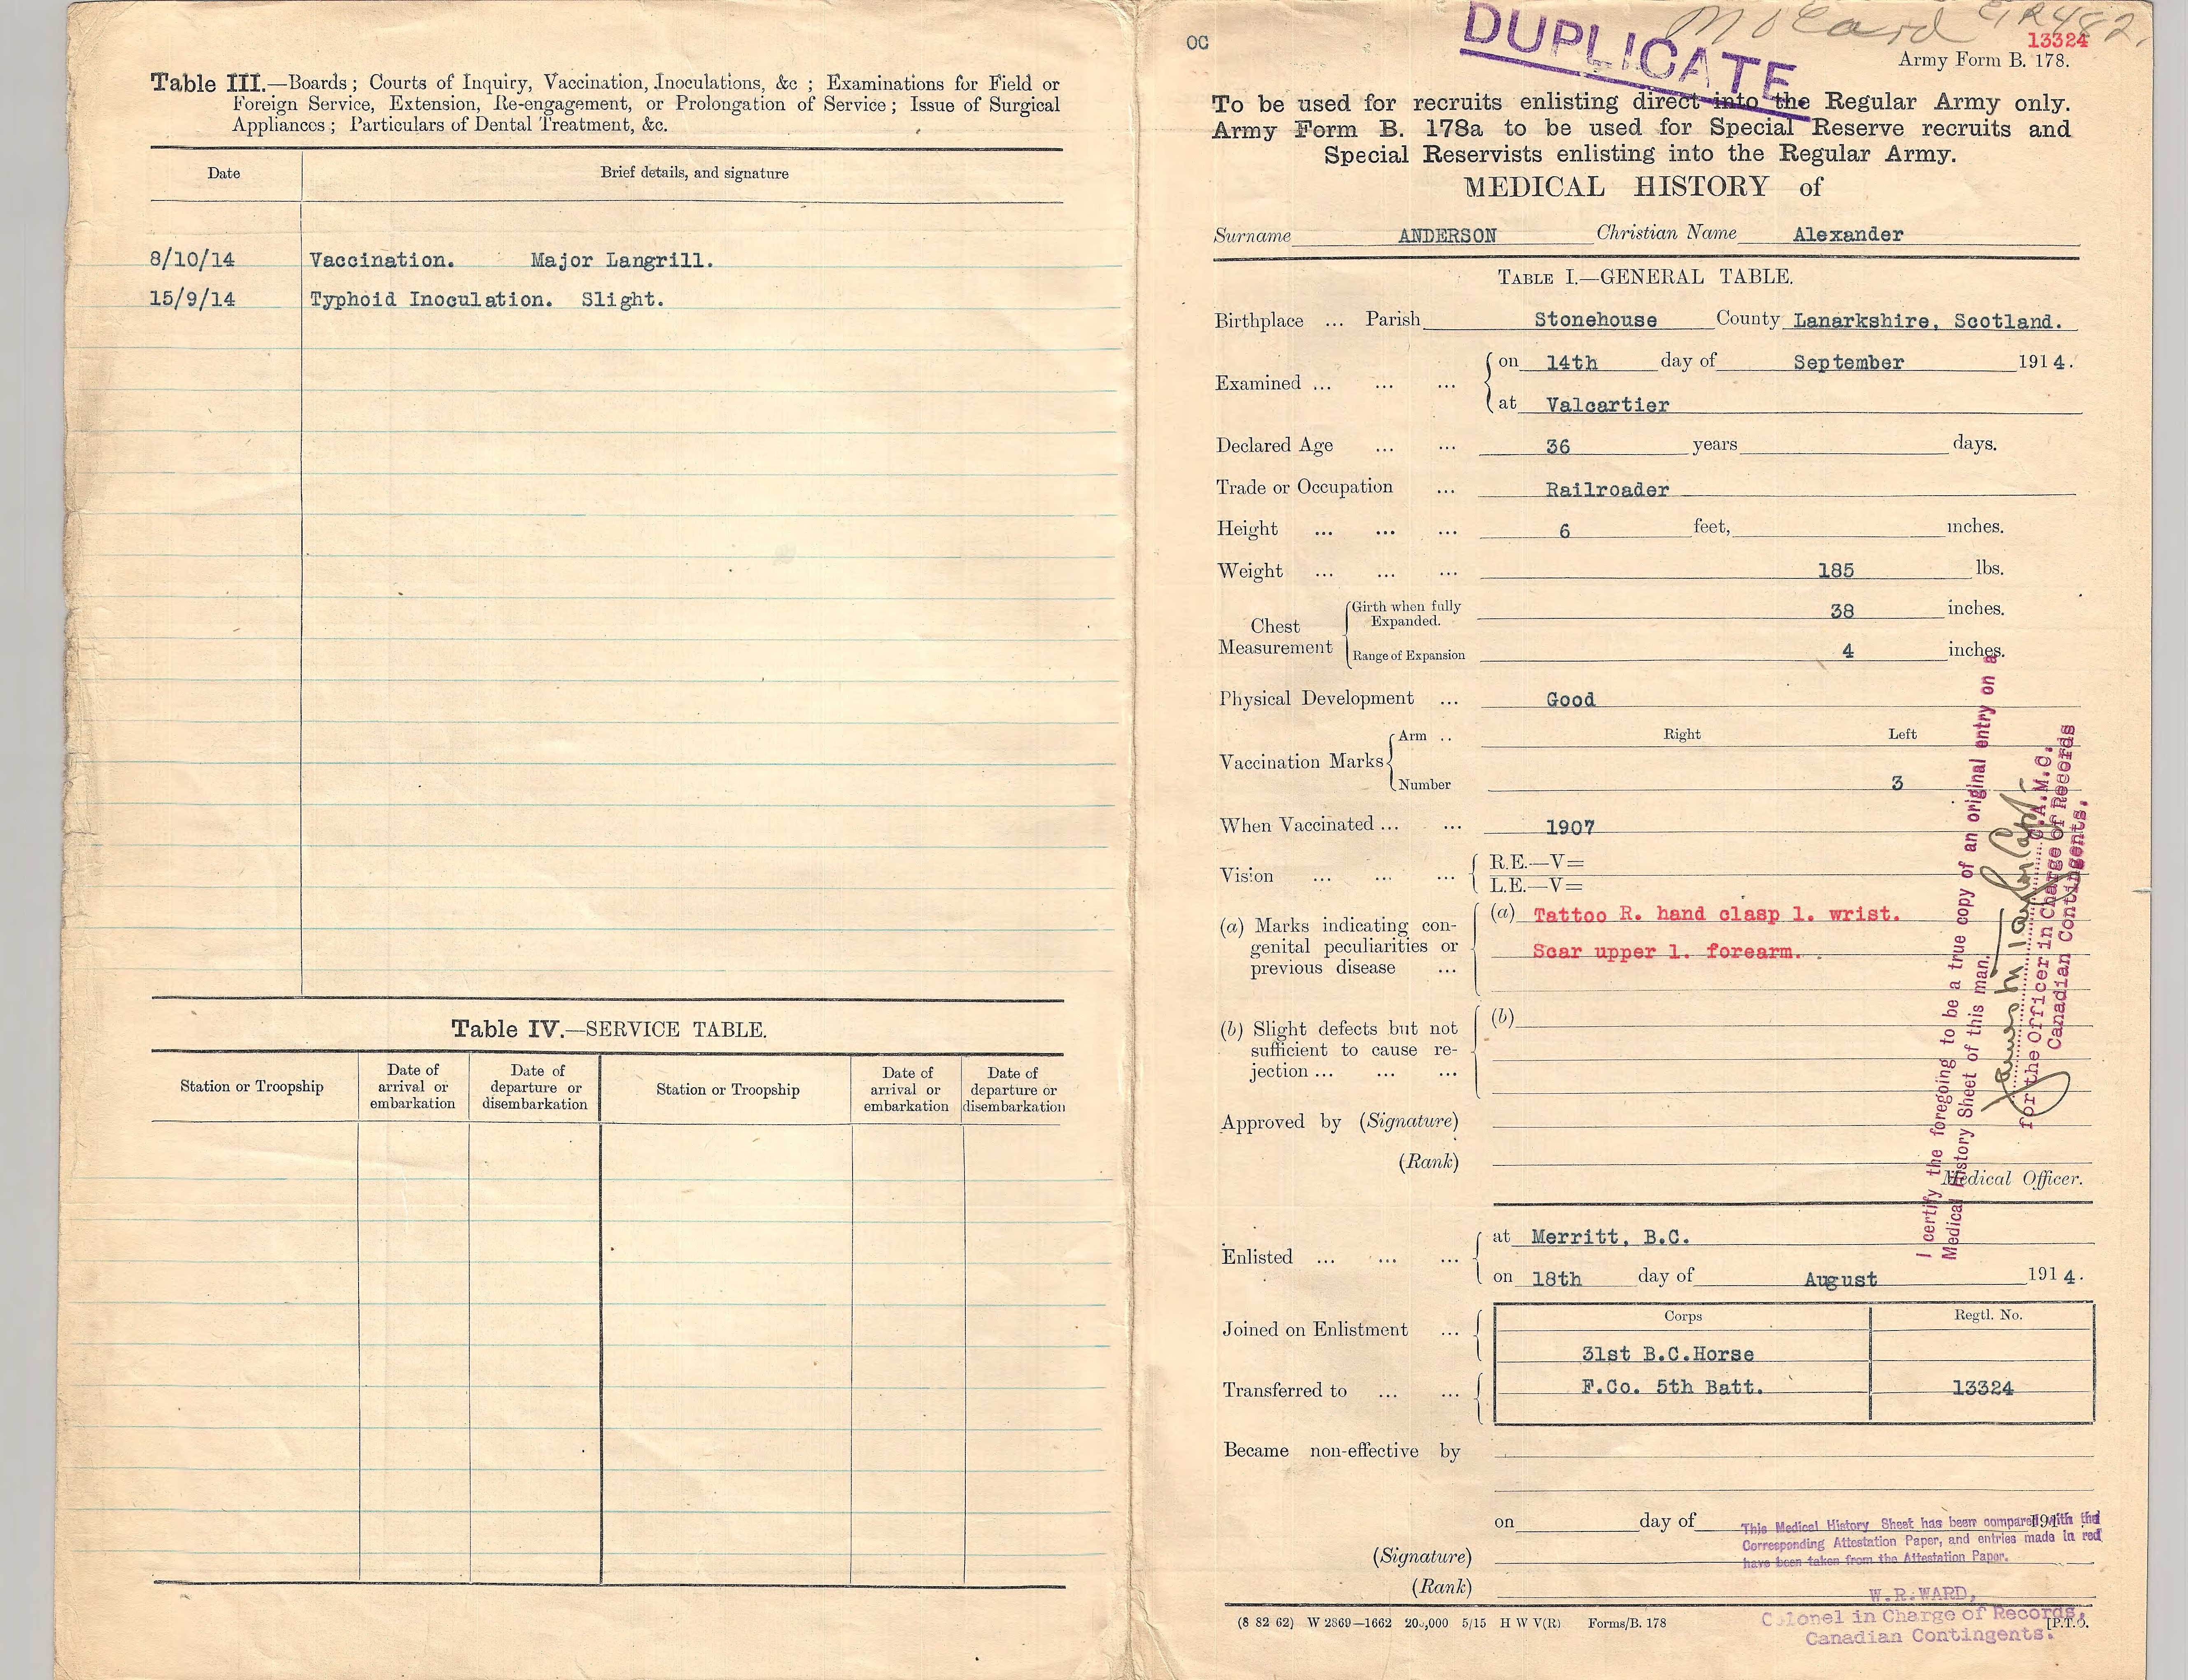 Table III.—Boards ; Courts of Inquiry, Vaccination, Inoculations, &c ; Examinations for Field or
Foreign Service, Extension, Re-engagement, or Prolongation of Service ; Issue of Surgical
Appliances ; Particulars of Dental Treatment, &c.
Date Brief details, and signature
8/10/14 Vaccination. Major Langrill.
15/9/14 Typhoid Inoculation. Slight.
Table IV.—SERVICE TABLE.
Station or Troopship Date of arrival or embarkation Date of departure or disembarkation Station or Troopship Date of arrival or embarkation Date of departure or disembarkation
OC
DUPLICATE
13324
Army Form B. 178.
To be used for recruits enlisting direct into the Regular Army only.
Army Form B. 178a to be used for Special Reserve recruits and
Special Reservists enlisting into the Regular Army.
MEDICAL HISTORY of
Surname ANDERSON Christian Name Alexander
TABLE I.—GENERAL TABLE.
Birthplace ... Parish Stonehouse County Lanarkshire, Scotland.
Examined ... ... ... on 14th day of September 1914.
at Valcartier
Declared Age ... ... 36 years days.
Trade or Occupation ... Railroader
Height ... ... ... 6 feet, inches.
Weight ... ... ... 185 lbs.
Chest Measurement Girth when fully Expanded. 38 inches.
Range of Expansion 4 inches.
Physical Development ... Good
Vaccination Marks Arm .. Right Left
Number 3
When Vaccinated ... ... 1907
Vision ... ... ... R.E.—V=
L.E.—V=
(a) Marks indicating con-
genital peculiarities or
previous disease ...
(a) Tattoo R. hand clasp l. wrist.
Scar upper l. forearm.
(b) Slight defects but not
sufficient to cause re-
jection ... ... ...
(b)
Approved by (Signature)
(Rank)
Medical Officer.
I certify the foregoing to be a true copy of an original entry on a
Medical History Sheet of this man.
C.A.M.C.
for the Officer in Charge of Records
Canadian Contingents.
Enlisted ... ... ... at Merritt, B.C.
on 18th day of August 1914.
Corps Regtl. No.
Joined on Enlistment ... 31st B.C.Horse
Transferred to ... ... F.Co. 5th Batt. 13324
Became non-effective by
on day of 191
(Signature)
(Rank)
This Medical History Sheet has been compared with the
Corresponding Attestation Paper, and entries made in red
have been taken from the Attestation Paper.
W.R.WARD,
Colonel in Charge of Records,
Canadian Contingents.
(8 82 62) W 2869—1662 5/15 H W V(R) Forms/B. 178 [P.T.O.